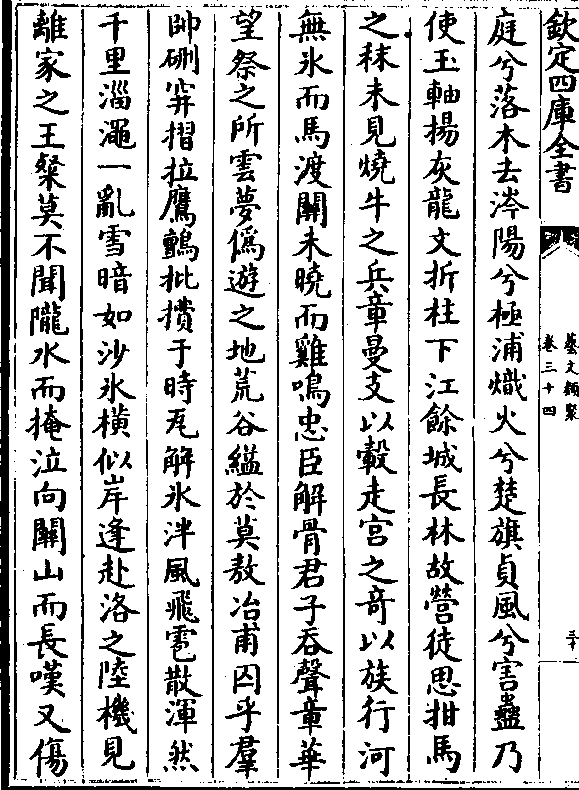 欽定四庫全書
藝文類聚
卷三十四
三十
庭兮落木去涔陽兮極浦熾火兮楚旗貞風兮害蠱乃
使玉軸揚灰龍文折柱下江餘城長林故營徒思拑馬
之秣未見燒牛之兵章曼支以轂走宫之竒以族行河
無氷而馬渡關未曉而雞鳴忠臣解骨君子吞聲章華
望祭之所雲夢偽遊之地荒谷縊於莫敖冶甫囚乎羣
帥硎穽摺拉鷹鸇批㩌于時瓦解氷泮風飛雹散渾然
千里淄澠一亂雪暗如沙氷橫似岸逢赴洛之陸機見
離家之王粲莫不聞隴水而掩泣向關山而長嘆又傷